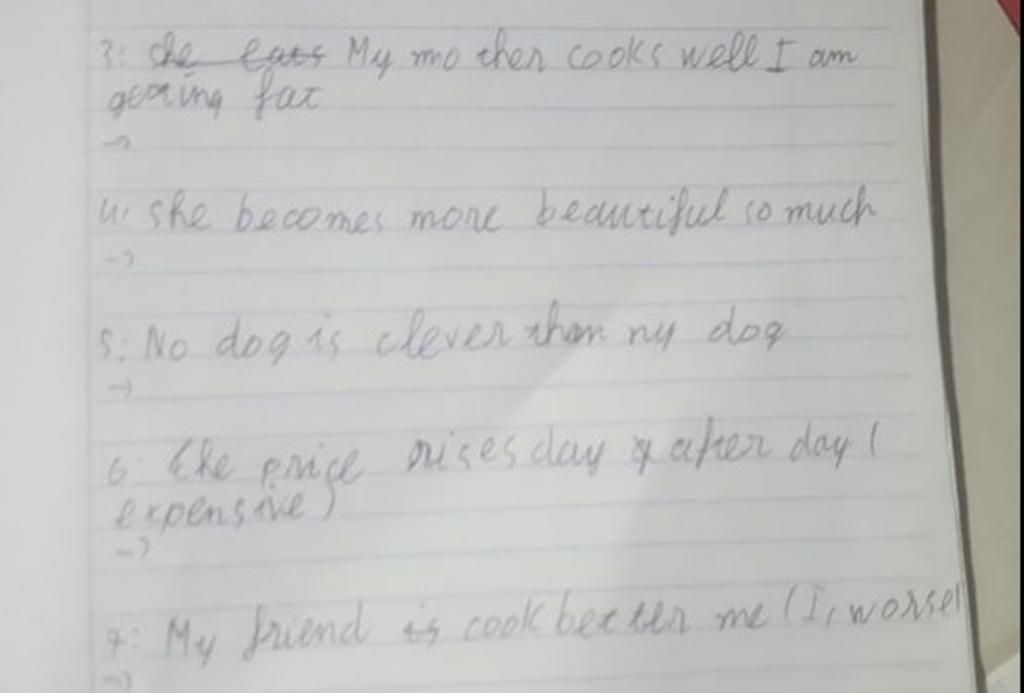 3: she eats My mother cooks well I am
getting fat
→
4: she becomes more beautiful so much
→
5: No dog is clever than my dog
→
6: The price rises day after day (
expensive)
→
7: My friend is cook better me (I, worse)
→